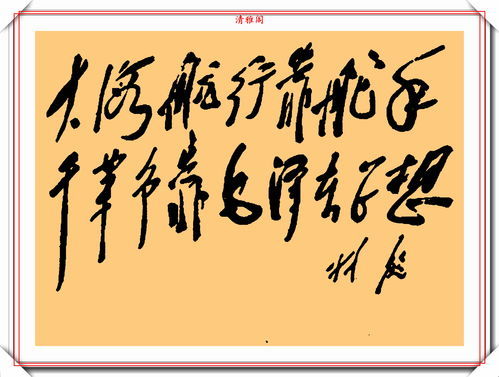 清雅阁
大海航行靠舵手
干革命靠毛泽东思想
林彪